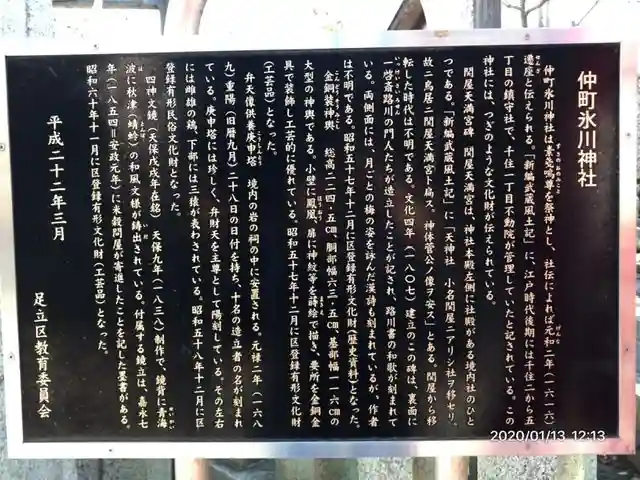 仲町氷川神社
仲町氷川神社は素盞嗚尊を祭神とし、社伝によれば元和二年（一六一六）
遷座と伝えられる。「新編武蔵風土記」に、江戸時代後期には千住二から五
丁目の鎮守社で、千住一丁目不動院が管理していたと記されている。この
神社には、つぎのような文化財が伝えられている。
関屋天満宮碑　関屋天満宮は、神社本殿左側に社殿がある境内社のひと
つである。「新編武蔵風土記」に「天神社　小名関屋ニアリシ社ヲ移セリ、
故ニ鳥居ニ関屋天満宮ト扁ス。神体菅公ノ像ヲ安ス」とある。関屋から移
転した時代は不明である。文化四年（一八〇七）建立のこの碑は、裏面に
一啓斎路川の門人たちが造立したことが記され、路川書の和歌が刻まれて
いる。両側面には、月ごとの梅の姿を詠んだ漢詩も刻まれているが、作者
は不明である。昭和五十七年十二月に区登録有形文化財（歴史資料）となった。
金銅装神輿　総高二二四・五㎝、胴部幅六三・五㎝、基部幅一一六㎝の
大型の神輿である。小壁に鳳凰、扉に神紋等を蒔絵で描き、要所を金銅金
具で装飾し工芸的に優れている。昭和五十七年十二月に区登録有形文化財
（工芸品）となった。
弁天像供養庚申塔　境内の岩の祠の中に安置される。元禄二年（一六八
九）重陽（旧暦九月）二十八日の日付を持ち、十名の造立者の名が刻まれ
ている。庚申塔には珍しく、弁財天を主尊として陽刻している。その左右
には雌雄の鶏、下部には三猿が表わされている。昭和五十八年十二月に区
登録有形民俗文化財となった。
四神文鏡（天保戊戌年在銘）　天保九年（一八三八）制作で、鏡背に青海
波に秋津（蜻蛉）の和風文様が鋳出されている。付属する鏡立は、嘉永七
年（一八五四＝安政元年）に米穀問屋が寄進したことを記した墨書がある。
昭和六十年十一月に区登録有形文化財（工芸品）となった。
平成二十二年三月
足立区教育委員会
2020/01/13 12:13